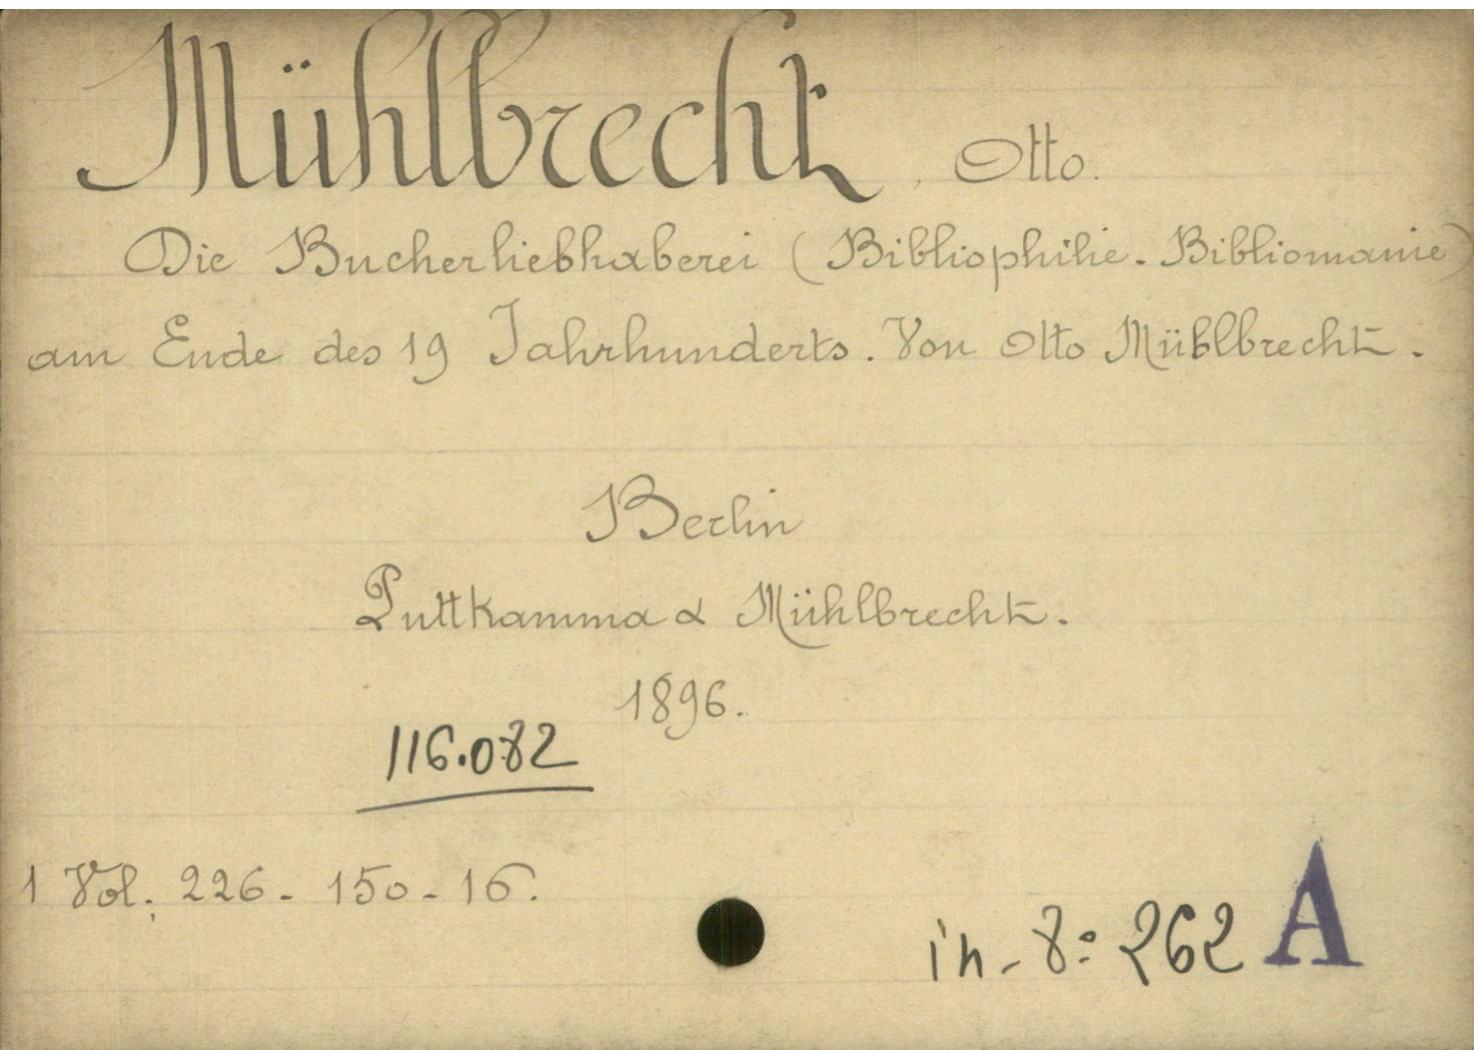 Mühlbrecht, Otto.
Die Bucherliebhaberei (Bibliophilie - Bibliomanie)
am Ende des 19 Jahrhunderts. Von Otto Mühlbrecht.
Berlin
Puttkamma & Mühlbrecht.
1896.
116.082
1 Vol; 226 - 150 - 16.
in-8º 262 A